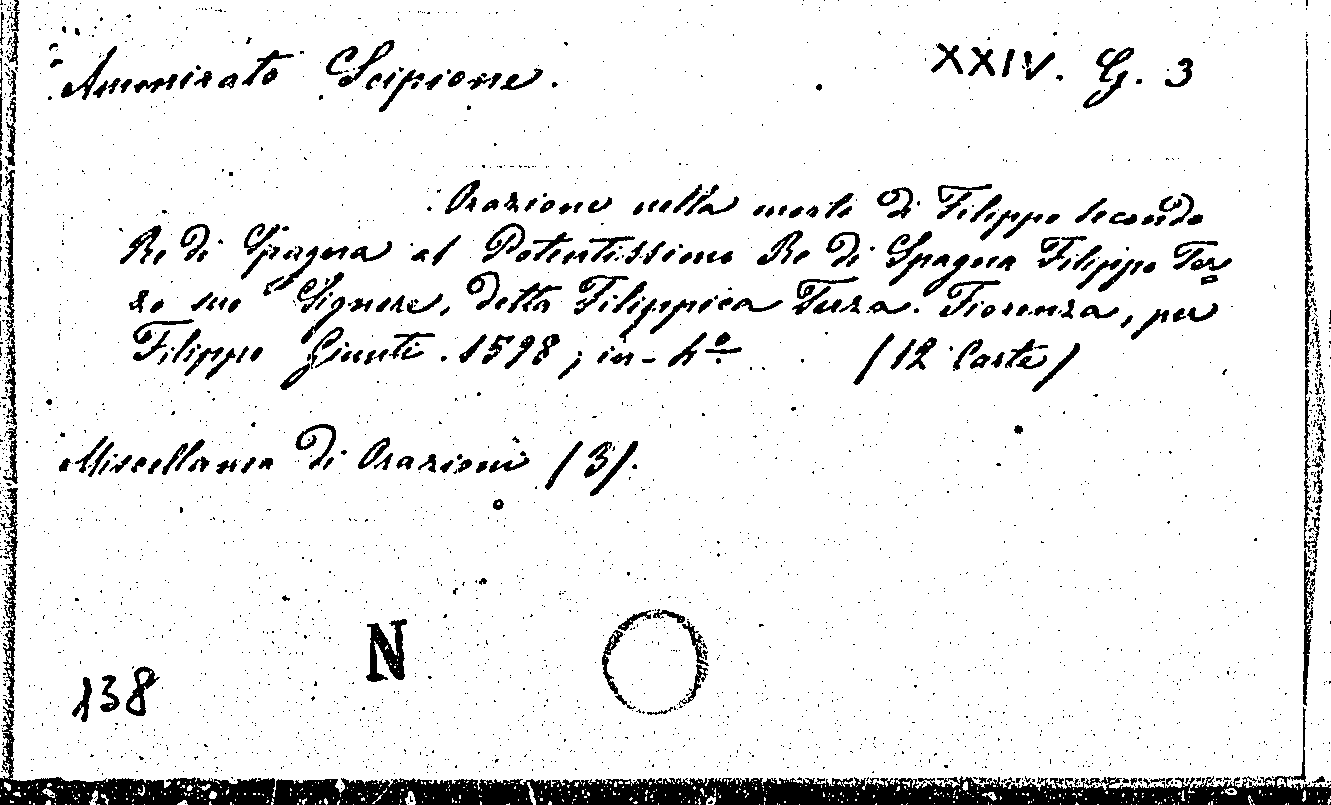 Ammirato Scipione. XXIV. G. 3
Orazione nella morte di Filippo Secondo
Re di Spagna al Potentissimo Re di Spagna Filippo Ter=
zo suo Signore, detta Filippica Terza. Fiorenza, per
Filippo Giunti. 1598; in-4º (12 Carte)
Miscellanea di Orazioni (3).
N
138